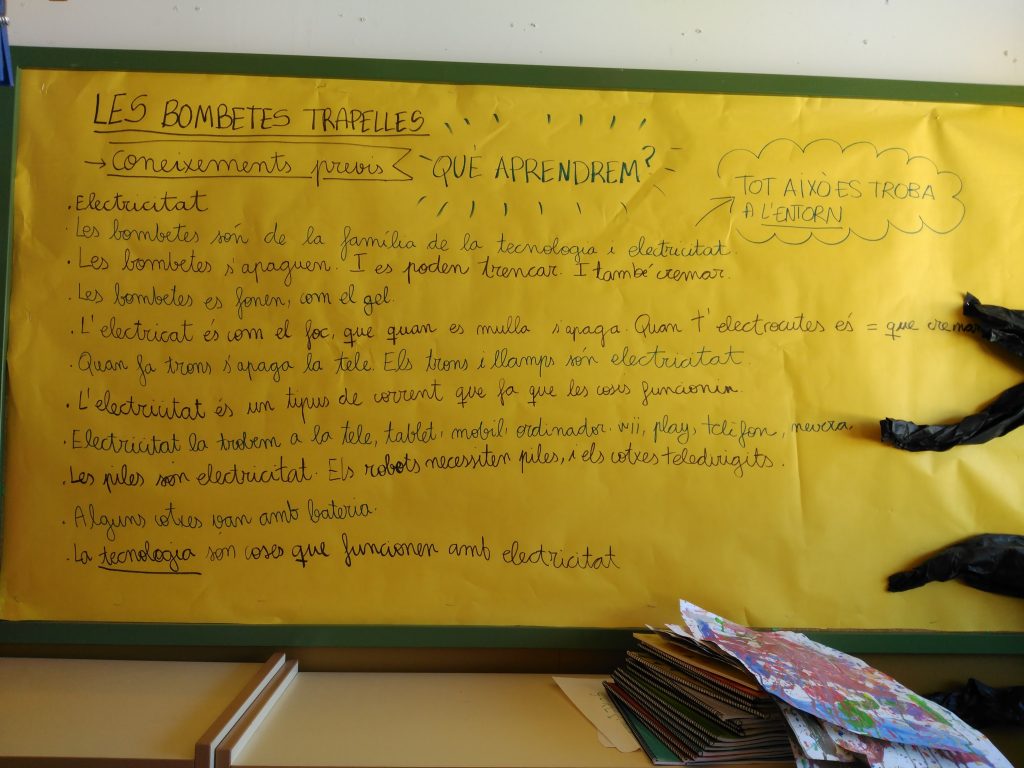 LES BOMBETES TRAPELLES
→ Coneixements previs
QUÈ APRENDREM?
TOT AIXÒ ES TROBA
A L'ENTORN
. Electricitat
. Les bombetes són de la família de la tecnologia i electricitat.
. Les bombetes s'apaguen. I es poden trencar. I també cremar.
. Les bombetes es fonen, com el gel.
. L'electricat és com el foc, que quan es mulla s'apaga. Quan t'electrocutes és = que cremar
. Quan fa trons s'apaga la tele. Els trons i llamps són electricitat.
. L'electricitat és un tipus de corrent que fa que les coses funcionin.
. Electricitat la trobem a la tele, tablet, mobil, ordinador, wii, play, telèfon, nevera.
. Les piles són electricitat. Els robots necessiten piles, i els cotxes teledirigits.
. Alguns cotxes van amb bateria.
. La tecnologia són coses que funcionen amb electricitat